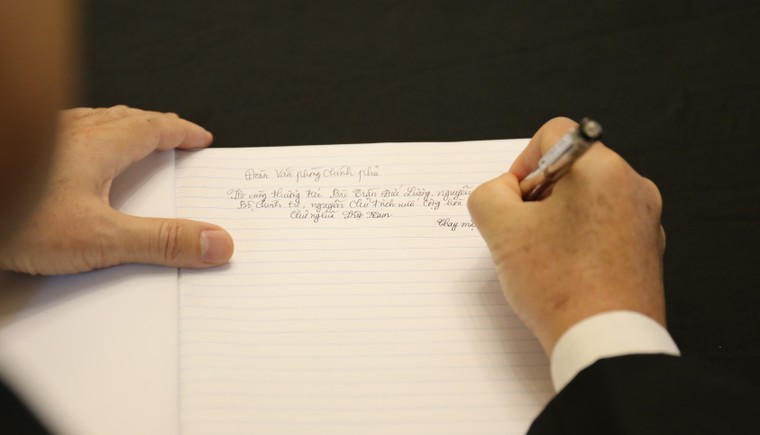 Đoàn Văn phòng Chính phủ
Vô cùng thương tiếc Trần Đức Lương, nguyên
Bộ Chính trị, nguyên Chủ tịch nước Cộng hòa
Chủ nghĩa Việt Nam